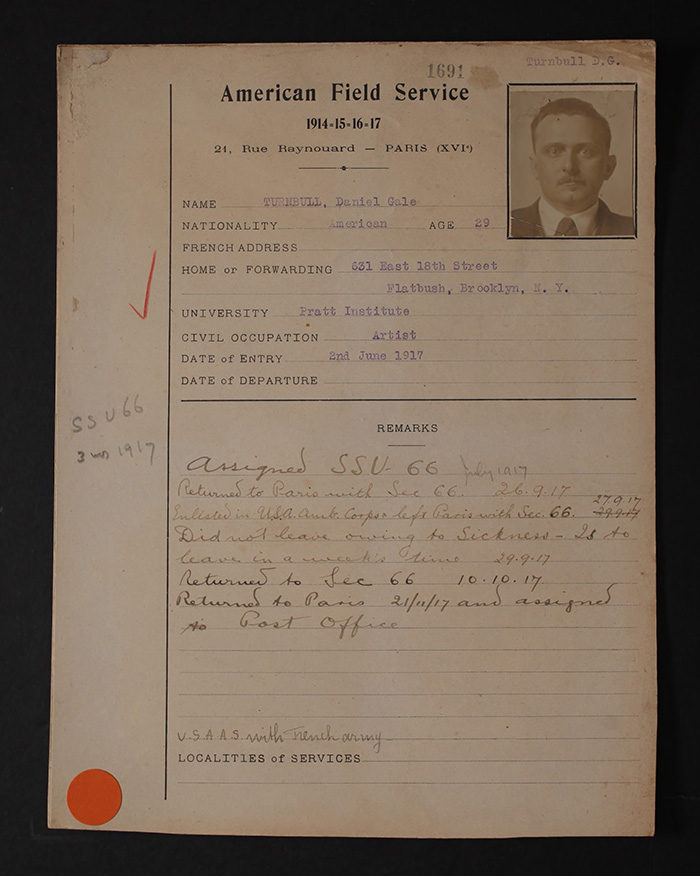 1691
Turnbull D.G.
American Field Service
1914-15-16-17
21, Rue Raynouard — PARIS (XVIe)
NAME TURNBULL, Daniel Gale
NATIONALITY American AGE 29
FRENCH ADDRESS
HOME or FORWARDING 631 East 18th Street
Flatbush, Brooklyn, N. Y.
UNIVERSITY Pratt Institute
CIVIL OCCUPATION Artist
DATE of ENTRY 2nd June 1917
DATE of DEPARTURE
SSU 66
3 mo 1917
REMARKS
Assigned SSU- 66 July 1917
Returned to Paris with Sec 66. 26.9.17
27.9.17
Enlisted in U.S.A. Amb. Corps & left Paris with Sec. 66. 29.9.17
Did not leave owing to Sickness – Is to
leave in a week's time 29.9.17
Returned to Sec 66 10.10.17
Returned to Paris 21/11/17 and assigned
to Post Office
U.S.A.A.S. with French army
LOCALITIES of SERVICES